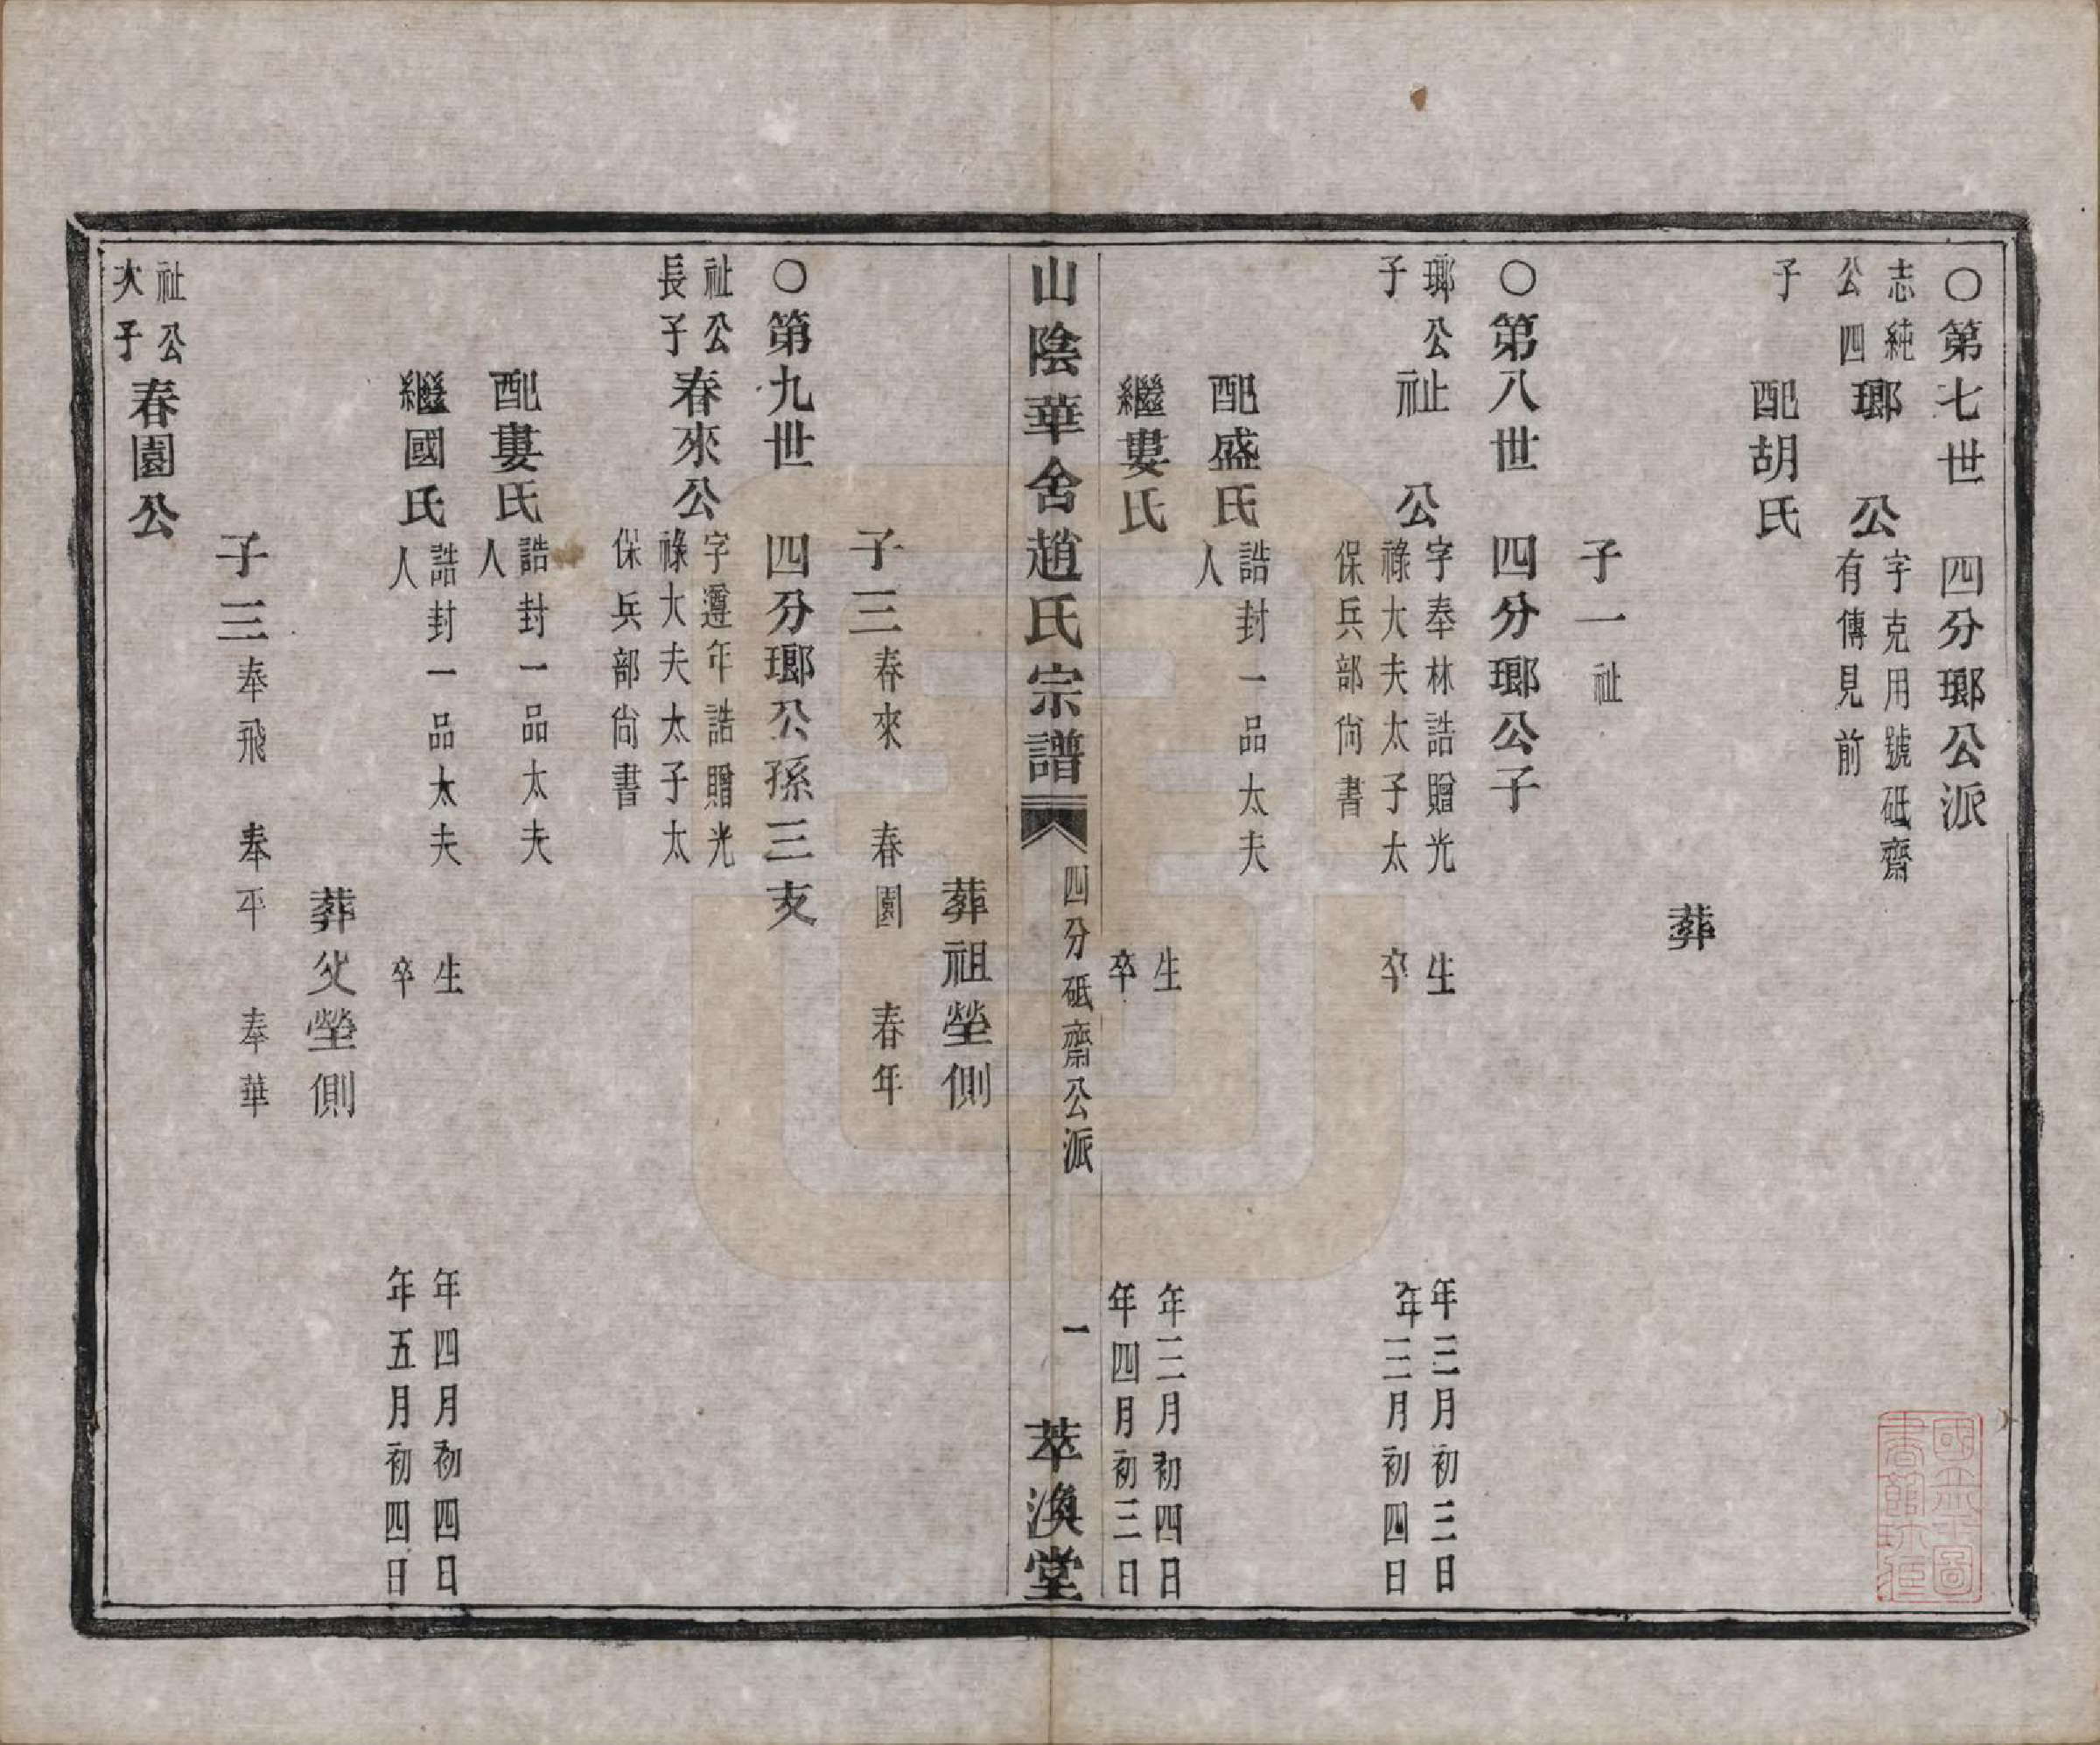 〇第七世　四分瑯公派
志純公四子　瑯　公　字克用號砥齋有傳見前
配胡氏
葬
子一　祉
〇第八世　四分瑯公子
瑯公子　祉　公　字奉林誥贈光祿大夫太子太保兵部尚書　生　年三月初三日　卒　年三月初四日
配盛氏　誥封一品太夫人
繼婁氏　生　年三月初四日　卒　年四月初三日
山陰華舍趙氏宗譜　四分砥齋公派　一　萃渙堂
葬祖塋側
子三　春來　春園　春年
〇第九世　四分瑯公孫三支
祉公長子　春來公　字遵年誥贈光祿大夫太子太保兵部尚書
配婁氏　誥封一品太夫人
繼國氏　誥封一品太夫人　生　年四月初四日　卒　年五月初四日
葬父塋側
子三　奉飛　奉平　奉華
祉公次子　春園公